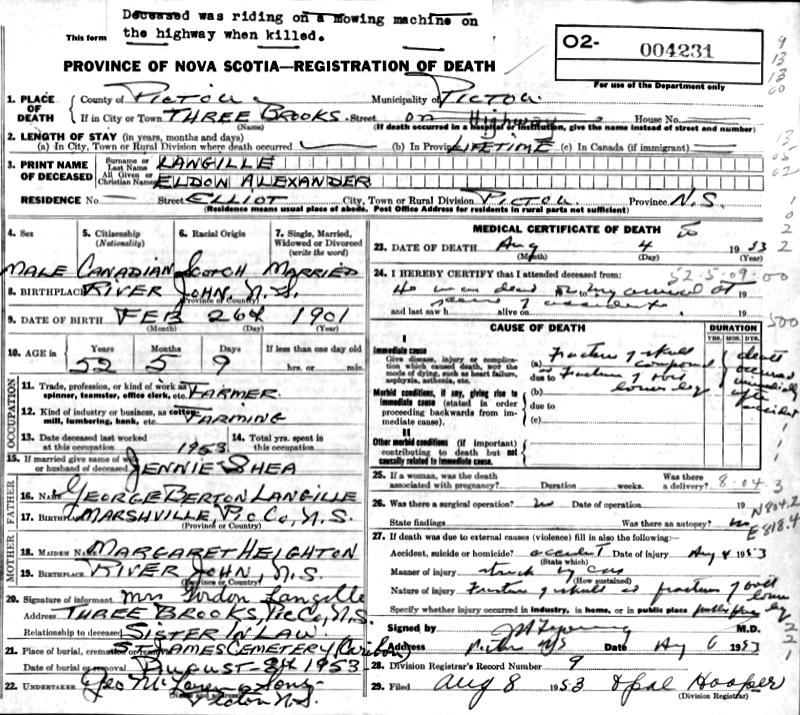 Deceased was riding on a mowing machine on
This form the highway when killed.
O2- 004231
For use of the Department only
PROVINCE OF NOVA SCOTIA—REGISTRATION OF DEATH
1. PLACE OF DEATH County of PICTOU Municipality of PICTOU
If in City or Town THREE BROOKS. Street on Highway House No.
(Name) (If death occurred in a hospital or institution, give the name instead of street and number)
2. LENGTH OF STAY (in years, months and days)
(a) In City, Town or Rural Division where death occurred (b) In Province LIFETIME (c) In Canada (if immigrant)
3. PRINT NAME OF DECEASED
Surname or Last Name LANGILLE
All Given or Christian Names ELDON ALEXANDER
RESIDENCE No — Street ELLIOT City, Town or Rural Division PICTOU Province N.S.
(Residence means usual place of abode. Post Office Address for residents in rural parts not sufficient)
4. Sex 5. Citizenship (Nationality) 6. Racial Origin 7. Single, Married, Widowed or Divorced (write the word)
MALE CANADIAN SCOTCH MARRIED
8. BIRTHPLACE RIVER JOHN N.S.
(Province or Country)
9. DATE OF BIRTH FEB 26th 1901
(Month) (Day) (Year)
10. AGE in Years Months Days If less than one day old
52 5 9 hrs. or min.
OCCUPATION
11. Trade, profession, or kind of work as spinner, teamster, office clerk, etc. FARMER.
12. Kind of industry or business, as cotton mill, lumbering, bank, etc. FARMING
13. Date deceased last worked at this occupation 1953 14. Total yrs. spent in this occupation
15. If married give name of wife or husband of deceased JENNIE SHEA
FATHER
16. Name GEORGE BERTON LANGILLE
17. Birthplace MARSHVILLE, Pic Co, N.S.
(Province or Country)
MOTHER
18. MAIDEN Name MARGARET HEIGHTON
19. Birthplace RIVER JOHN, N.S.
(Province or Country)
20. Signature of informant Mrs Gordon Langille
Address THREE BROOKS, Pic Co, N.S.
Relationship to deceased SISTER IN LAW.
21. Place of burial, cremation or removal ST. JAMES CEMETERY (Caribou)
Date of burial or removal AUGUST 8th 1953
22. UNDERTAKER Geo McLaren & Sons
Pictou N.S.
(Name and address)
MEDICAL CERTIFICATE OF DEATH
23. DATE OF DEATH Aug 4 1953
(Month) (Day) (Year)
24. I HEREBY CERTIFY that I attended deceased from: 52-5-09-00
He was dead on my arrival at 19
scene of accident
and last saw h alive on 19
CAUSE OF DEATH DURATION
YRS. MOS. DYS.
I
Immediate cause
Give disease, injury or complication which caused death, not the mode of dying, such as heart failure, asphyxia, asthenia, etc.
(a) Fracture of skull compound
due to Fracture of left lower leg
death occurred immediately after accident
Morbid conditions, if any, giving rise to immediate cause (stated in order proceeding backwards from immediate cause).
(b)
due to
(c)
II
Other morbid conditions (if important) contributing to death but not causally related to immediate cause.
25. If a woman, was the death associated with pregnancy? Duration weeks. Was there a delivery? 8-04.3
26. Was there a surgical operation? no Date of operation 19 N804.2
State findings Was there an autopsy? no E818.4
27. If death was due to external causes (violence) fill in also the following:
Accident, suicide or homicide? accident Date of injury Aug 4 1953
(State which)
Manner of injury struck by car
(How sustained)
Nature of injury Fracture of skull and fracture of left lower leg
Specify whether injury occurred in industry, in home, or in public place public place
Signed by M.D.
Address Pictou N.S. Date Aug 6 1953
28. Division Registrar's Record Number 9
29. Filed Aug 8 1953 Opal Hooper
(Division Registrar)